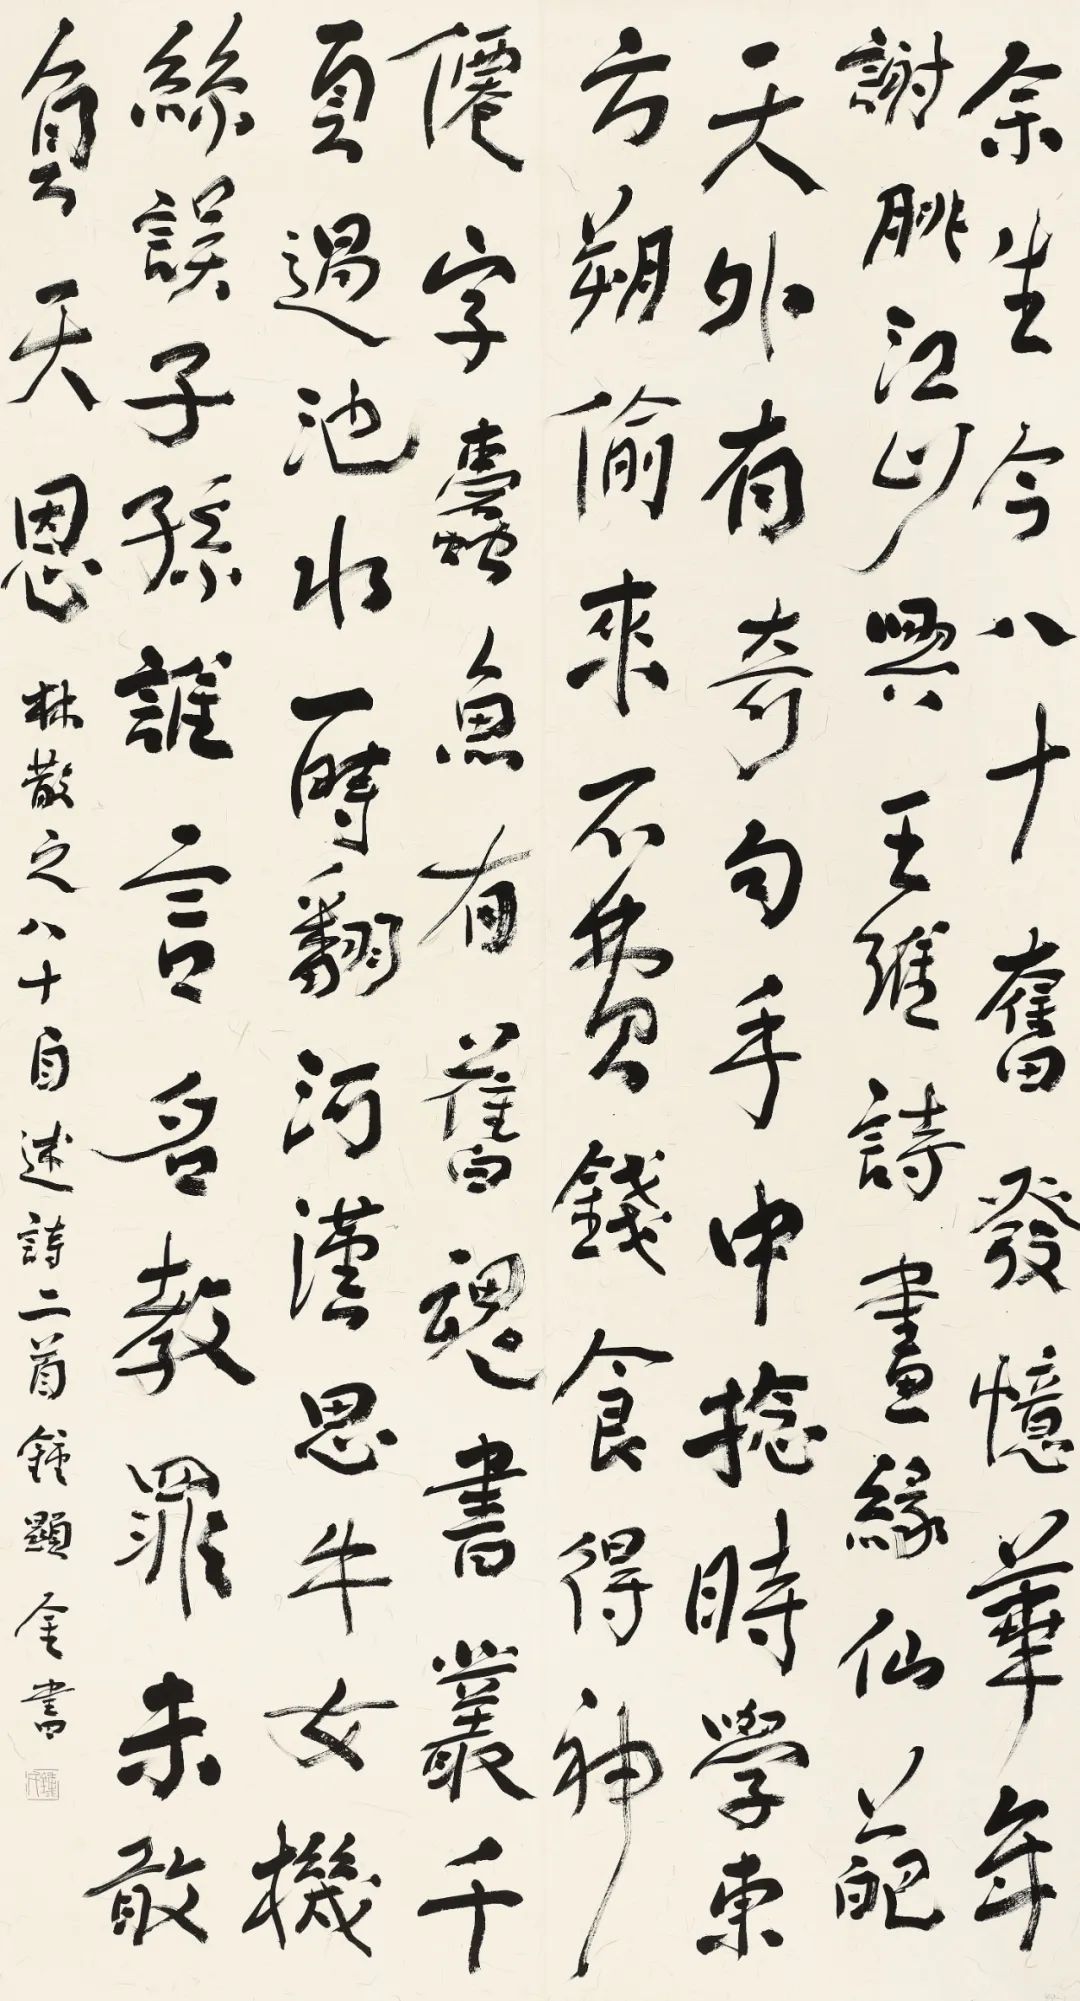 余生今八十奮發憶華年
謝朓江山興王維詩畫緣仙葩
天外有奇句手中捻時學東
方朔偷來不費錢食得神
僊字蠹魚有舊魂書叢千
頁過池水一時翻河漢思牛女機
絲誤子孫誰言名教罪未敢
負天恩
林散之八十自述詩二首鍾顯金書